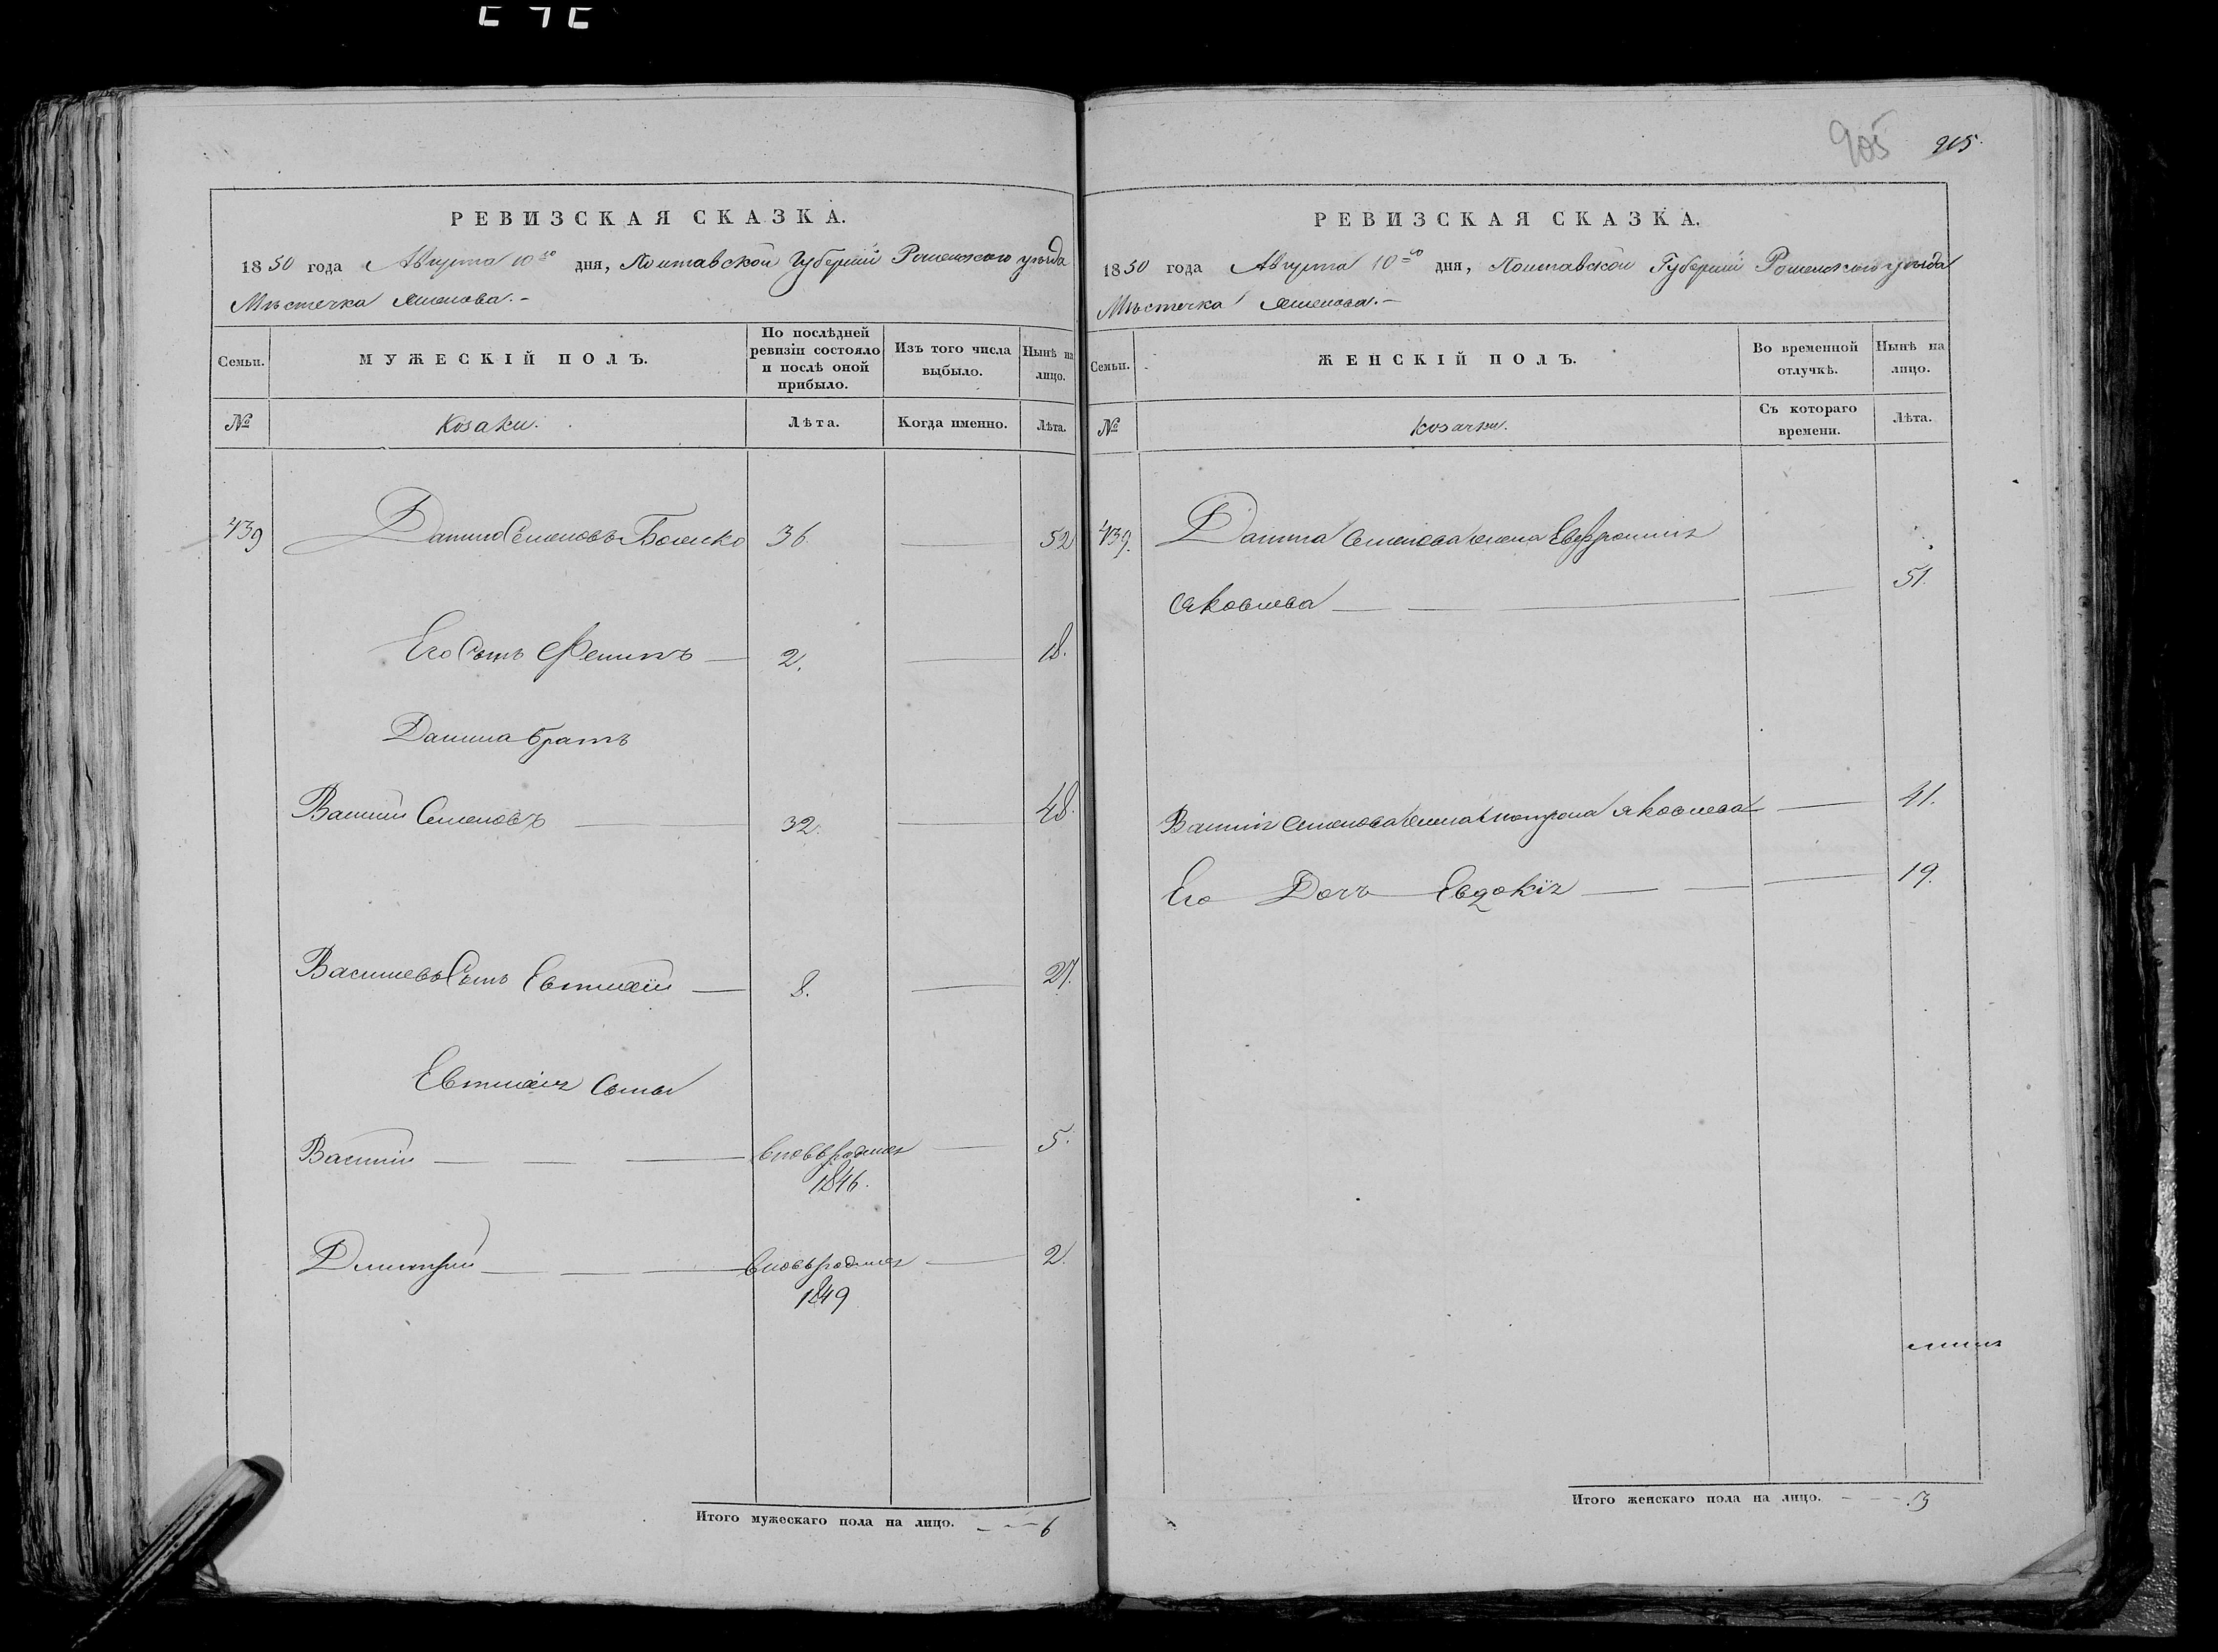 905 905.
РЕВИЗСКАЯ СКАЗКА.
1850 года Августа 10го дня, Полтавской Губерніи Роменского уѣзда
Мѣстечка Смелова.-
Семьи.
МУЖЕСКІЙ ПОЛЪ.
По послѣдней ревизіи состояло и послѣ оной прибыло.
Изъ того числа выбыло.
Нынѣ на лицо.
№
козаки.
Лѣта.
Когда именно.
Лѣта.
439 Данило Семеновъ 36 52
Его Сынъ Филипъ 2. 18.
Данила братъ
Василій Семеновъ 32. 48.
Василіевъ Сынъ Евтихій 8. 27.
Евтихія Сыны
Василій вновьродился 5.
1846.
Димитрій вновьродился 2.
1849
Итого мужескаго пола на лицо. 6
РЕВИЗСКАЯ СКАЗКА.
1850 года Августа 10го дня, Полтавской Губерніи Роменского уѣзда
Мѣстечка Смелова.-
Семьи.
ЖЕНСКІЙ ПОЛЪ.
Во временной отлучкѣ.
Нынѣ на лицо.
№
козачки.
Съ котораго времени.
Лѣта.
439. Данила Семенова жена Евфросинія
Яковлева 51.
Василія Семенова жена Матрона Яковлева 41.
Его Дочь Евдокія 19.
Итого женскаго пола на лицо. 3